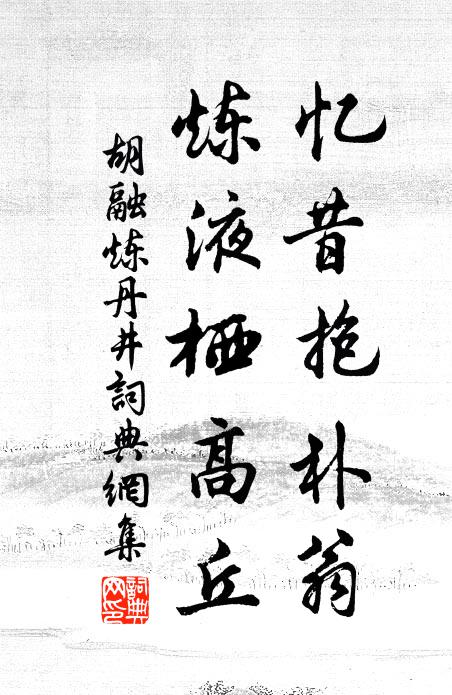 忆昔抱朴翁
炼液栖高丘
胡融炼丹井詞典網集
詞典网印